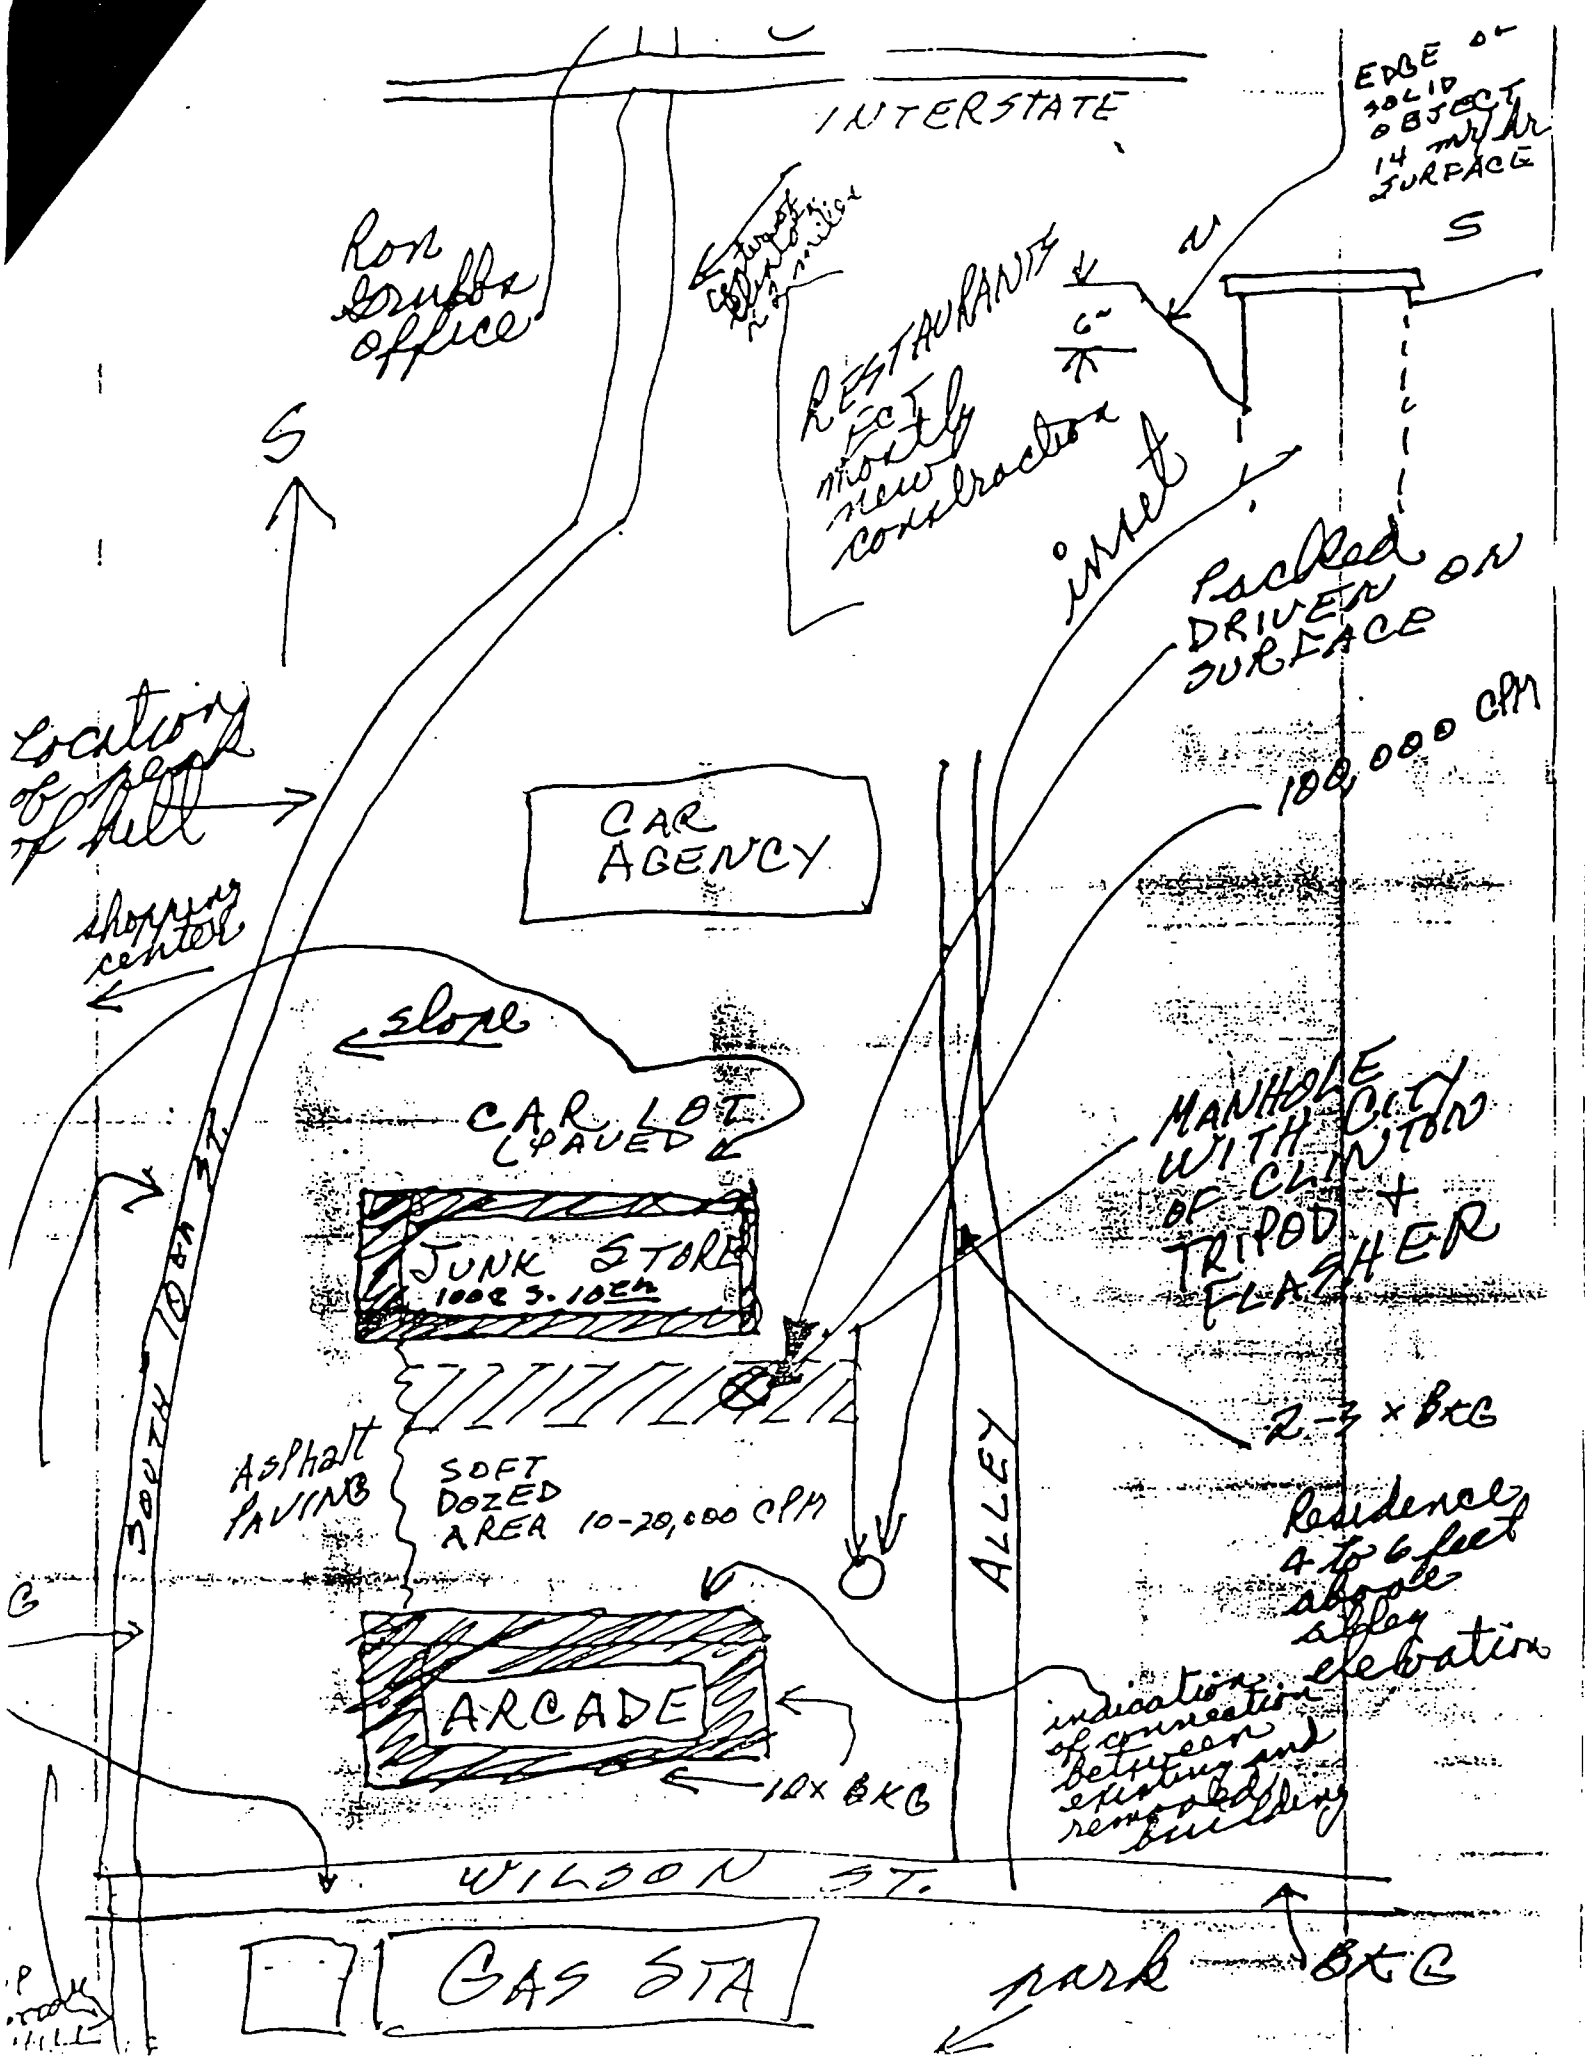 INTERSTATE
EDGE OF
SOLID
OBJECT
14 mr/hr
SURFACE
N
S
Ron
Grubbs
office
Center of
Clinton
≈ 2 miles
RESTAURANTS
ECT
mostly
new
construction
6"
inset
S
Packed
DRIVEN ON
SURFACE
Location
of peak
of hill
100,000 CPM
CAR
AGENCY
shopping
center
slope
CAR LOT
(PAVED
MANHOLE
WITH CITY
OF CLINTON
TRIPOD +
FLASHER
JUNK STORE
1002 S. 10th
SOUTH 10th ST.
2-3 x BKG
Asphalt
PAVING
SOFT
DOZED
AREA 10-20,000 CPM
ALLEY
Residence
4 to 6 feet
above
alley
elevation
G
ARCADE
indication
of connection
between
existing and
removed
building
10x BKG
WILSON ST.
GAS STA
park
BKG